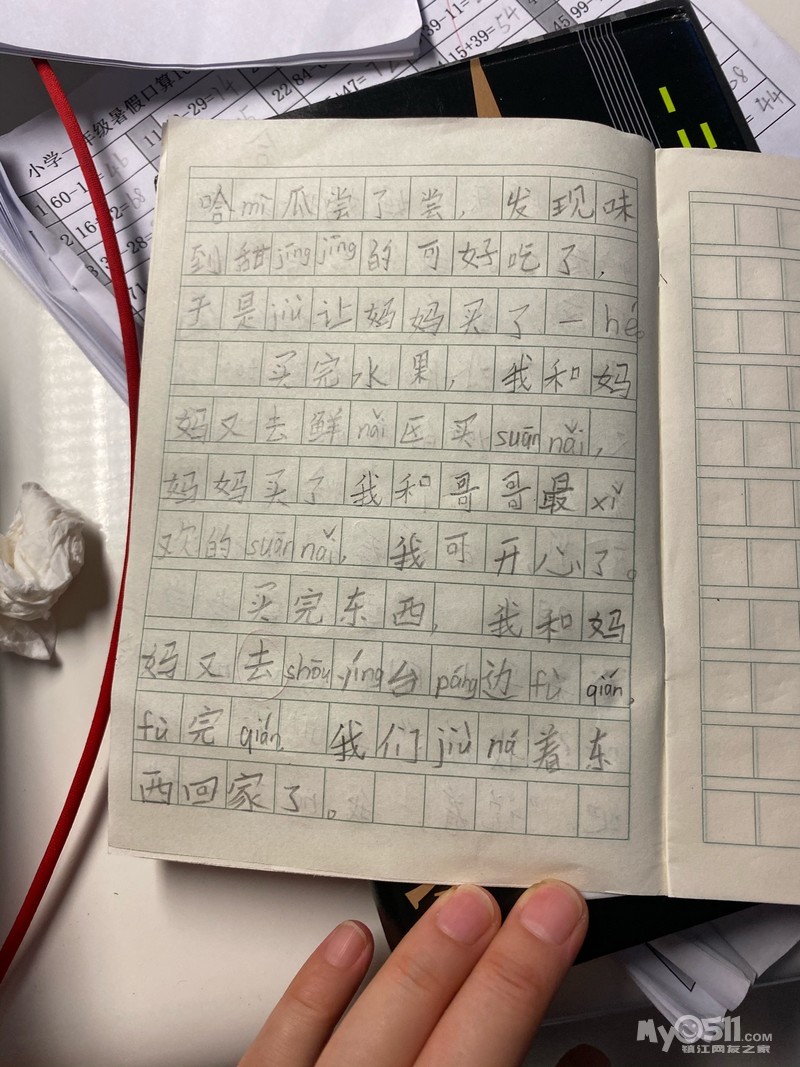 小学一年级暑假口算1
哈mì瓜尝了尝，发现味
到甜jīngjīng的可好吃了，
于是jiù让妈妈买了一hé。
买完水果，我和妈
妈又去鲜nǎi区买suānnǎi，
妈妈买了我和哥哥最xǐ
欢的suānnǎi，我可开心了。
买完东西，我和妈
妈又去shōujíng台páng边fù qián，
fù完qián，我们jiù ná着东
西回家了。
My0511.COM
镇江网友之家